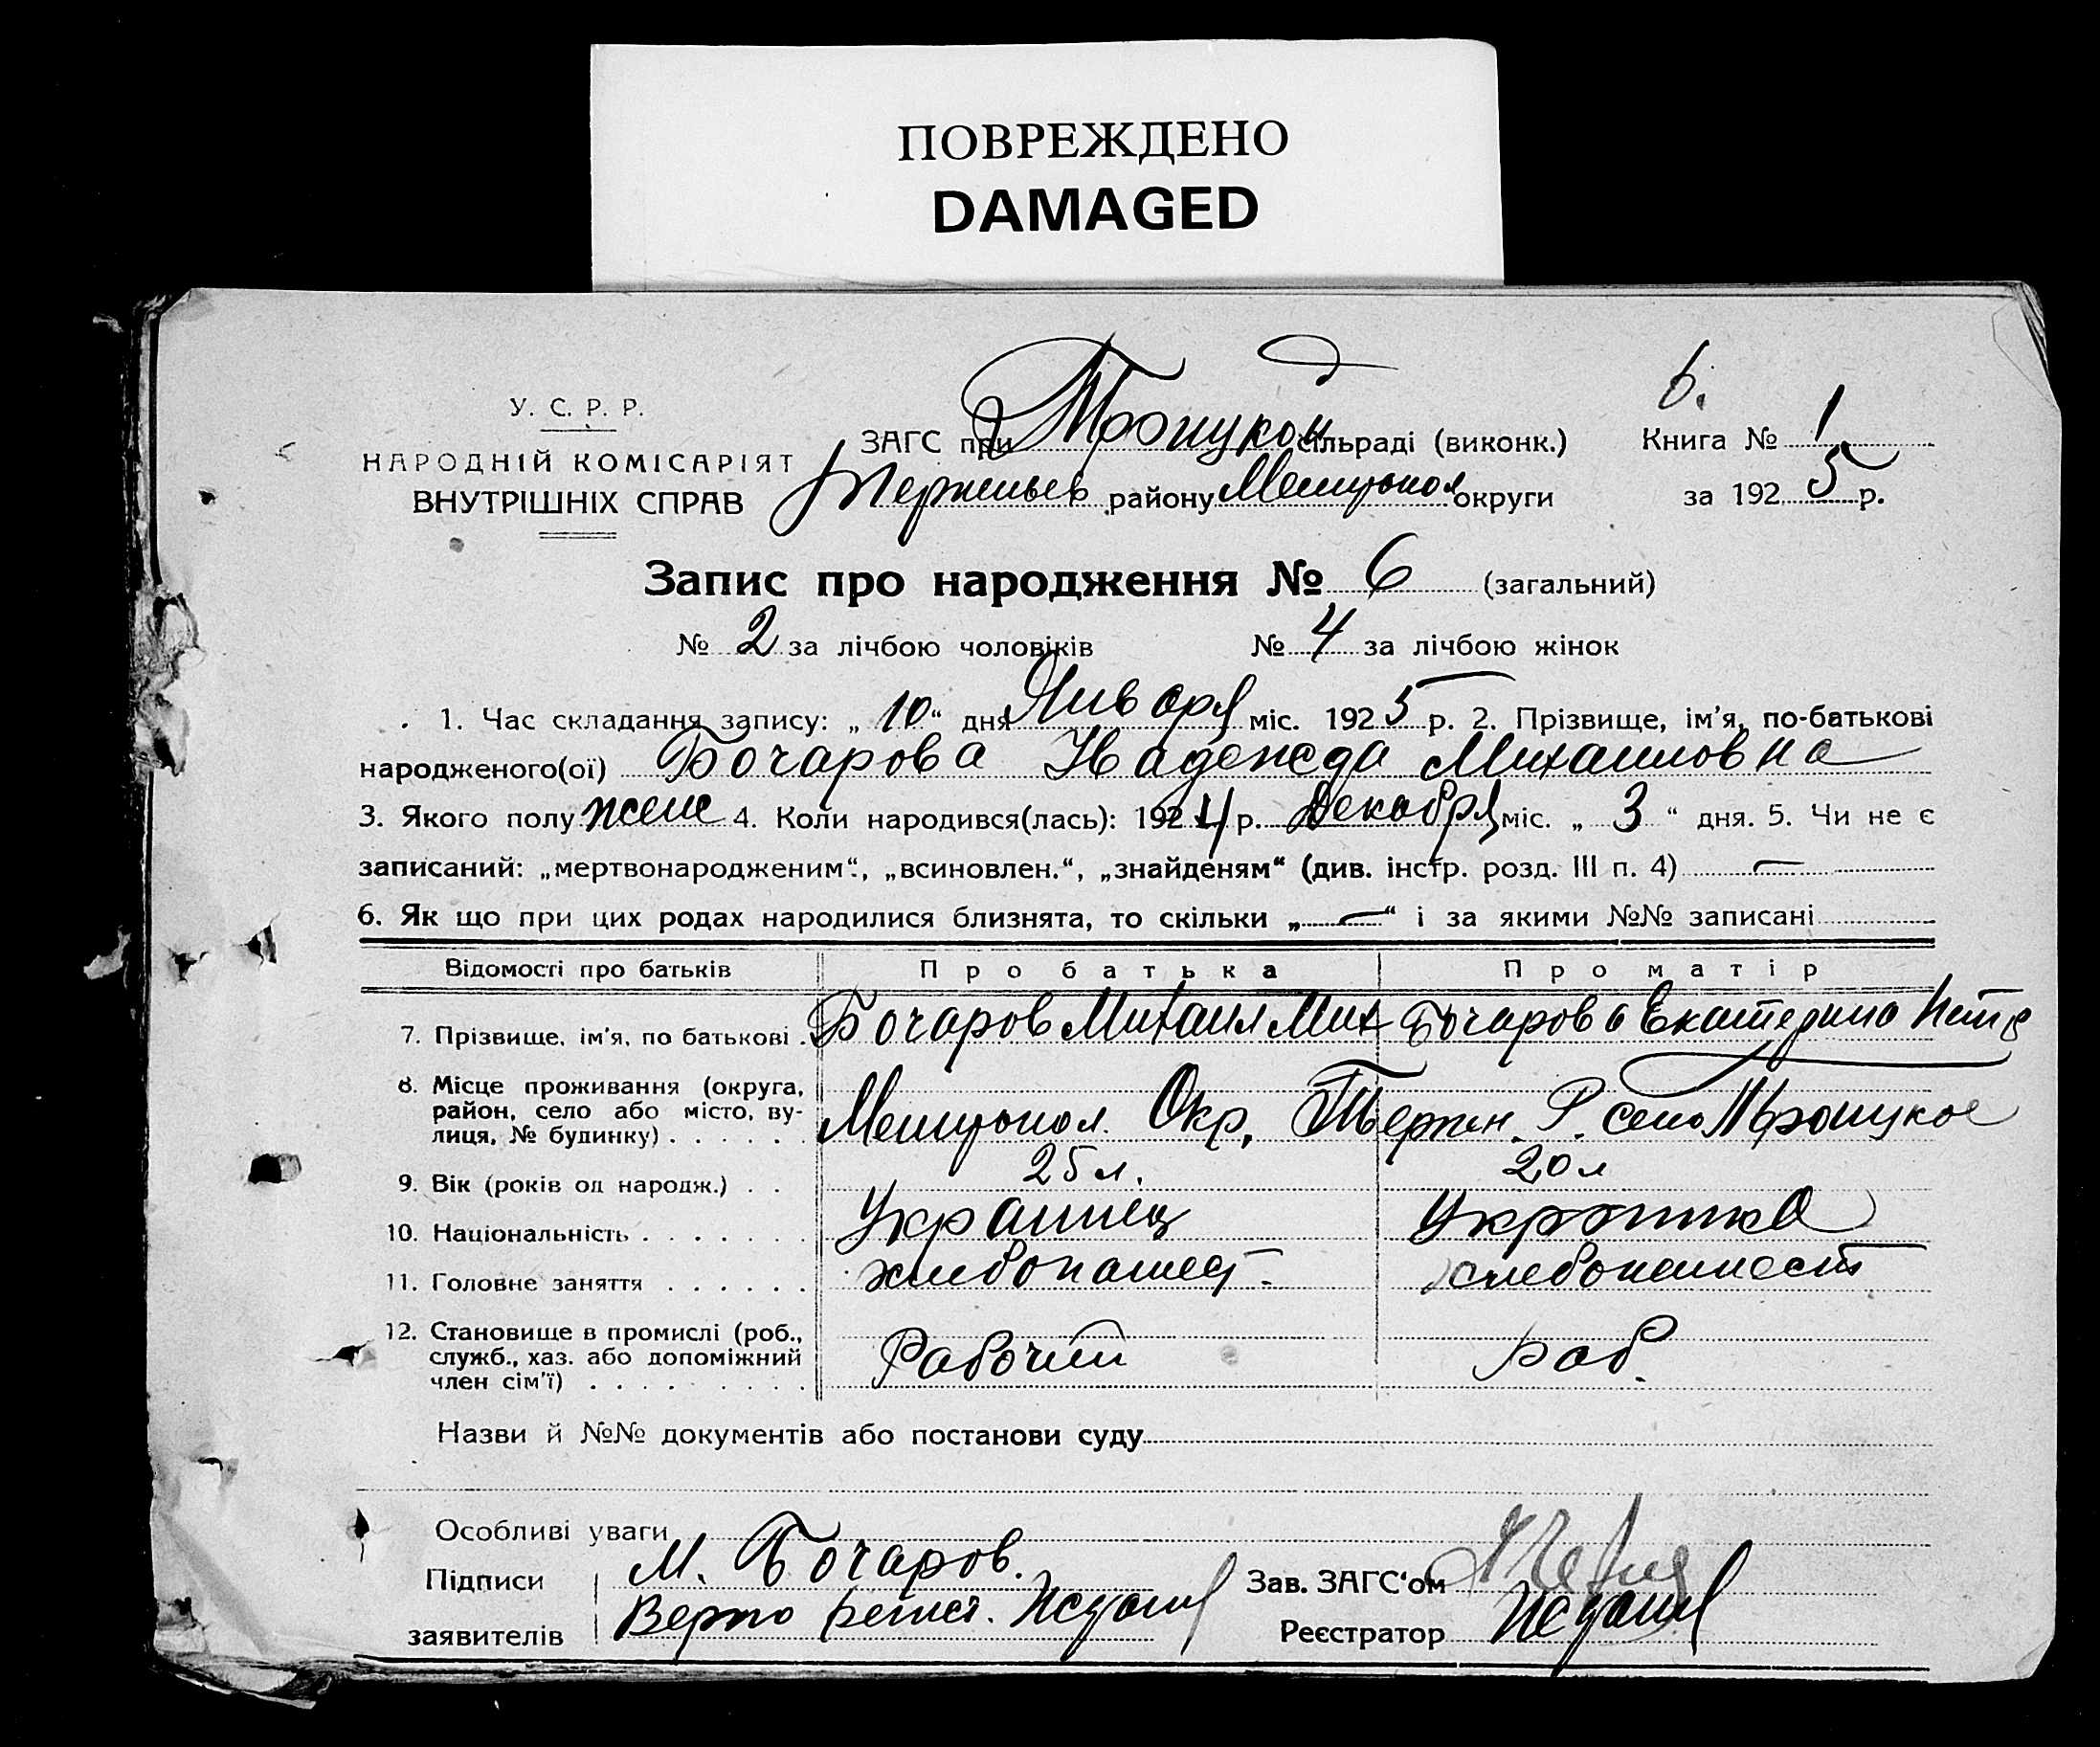 ПОВРЕЖДЕНО
DAMAGED
6.
У. С. Р. Р.
НАРОДНІЙ КОМІСАРІЯТ
ВНУТРІШНІХ СПРАВ
ЗАГС при Троицкой сільраді (виконк.) Книга № 1
району Мелитопол округи за 1925 р.
Запис про народження № 6 (загальний)
№ 2 за лічбою чоловіків № 4 за лічбою жінок
1. Час складання запису: „ 10 “ дня Января міс. 1925 р. 2. Прізвище, ім'я, по-батькові
народженого(ої) Бочарова Надежда Михаиловна
3. Якого полу жен 4. Коли народився(лась): 1924 р. Декабря міс. „ 3 “ дня. 5. Чи не є
записаний: „мертвонародженим“, „всиновлен.“, „знайденям“ (див. інстр. розд. III п. 4) —
6. Як що при цих родах народилися близнята, то скільки „ — “ і за якими №№ записані
Відомості про батьків Про батька Про матір
7. Прізвище, ім'я, по батькові . Бочаров Михаил Мих Бочарова Екатерина
8. Місце проживання (округа,
район, село або місто, ву-
лиця, № будинку) . . . . . Мелитопол. Окр, Р. село Троицкое
9. Вік (років од народж.) . . 25 л. 20 л
10. Національність . . . . . . . Украинец Укртинка
11. Головне заняття . . . . . . хлебопашест.
12. Становище в промислі (роб.,
служб., хаз. або допоміжний
член сім'ї) . . . . . . . . . Рабочий раб.
Назви й №№ документів або постанови суду
Особливі уваги
Підписи М. Бочаров. Зав. ЗАГС'ом
заявителів Верно Реєстратор